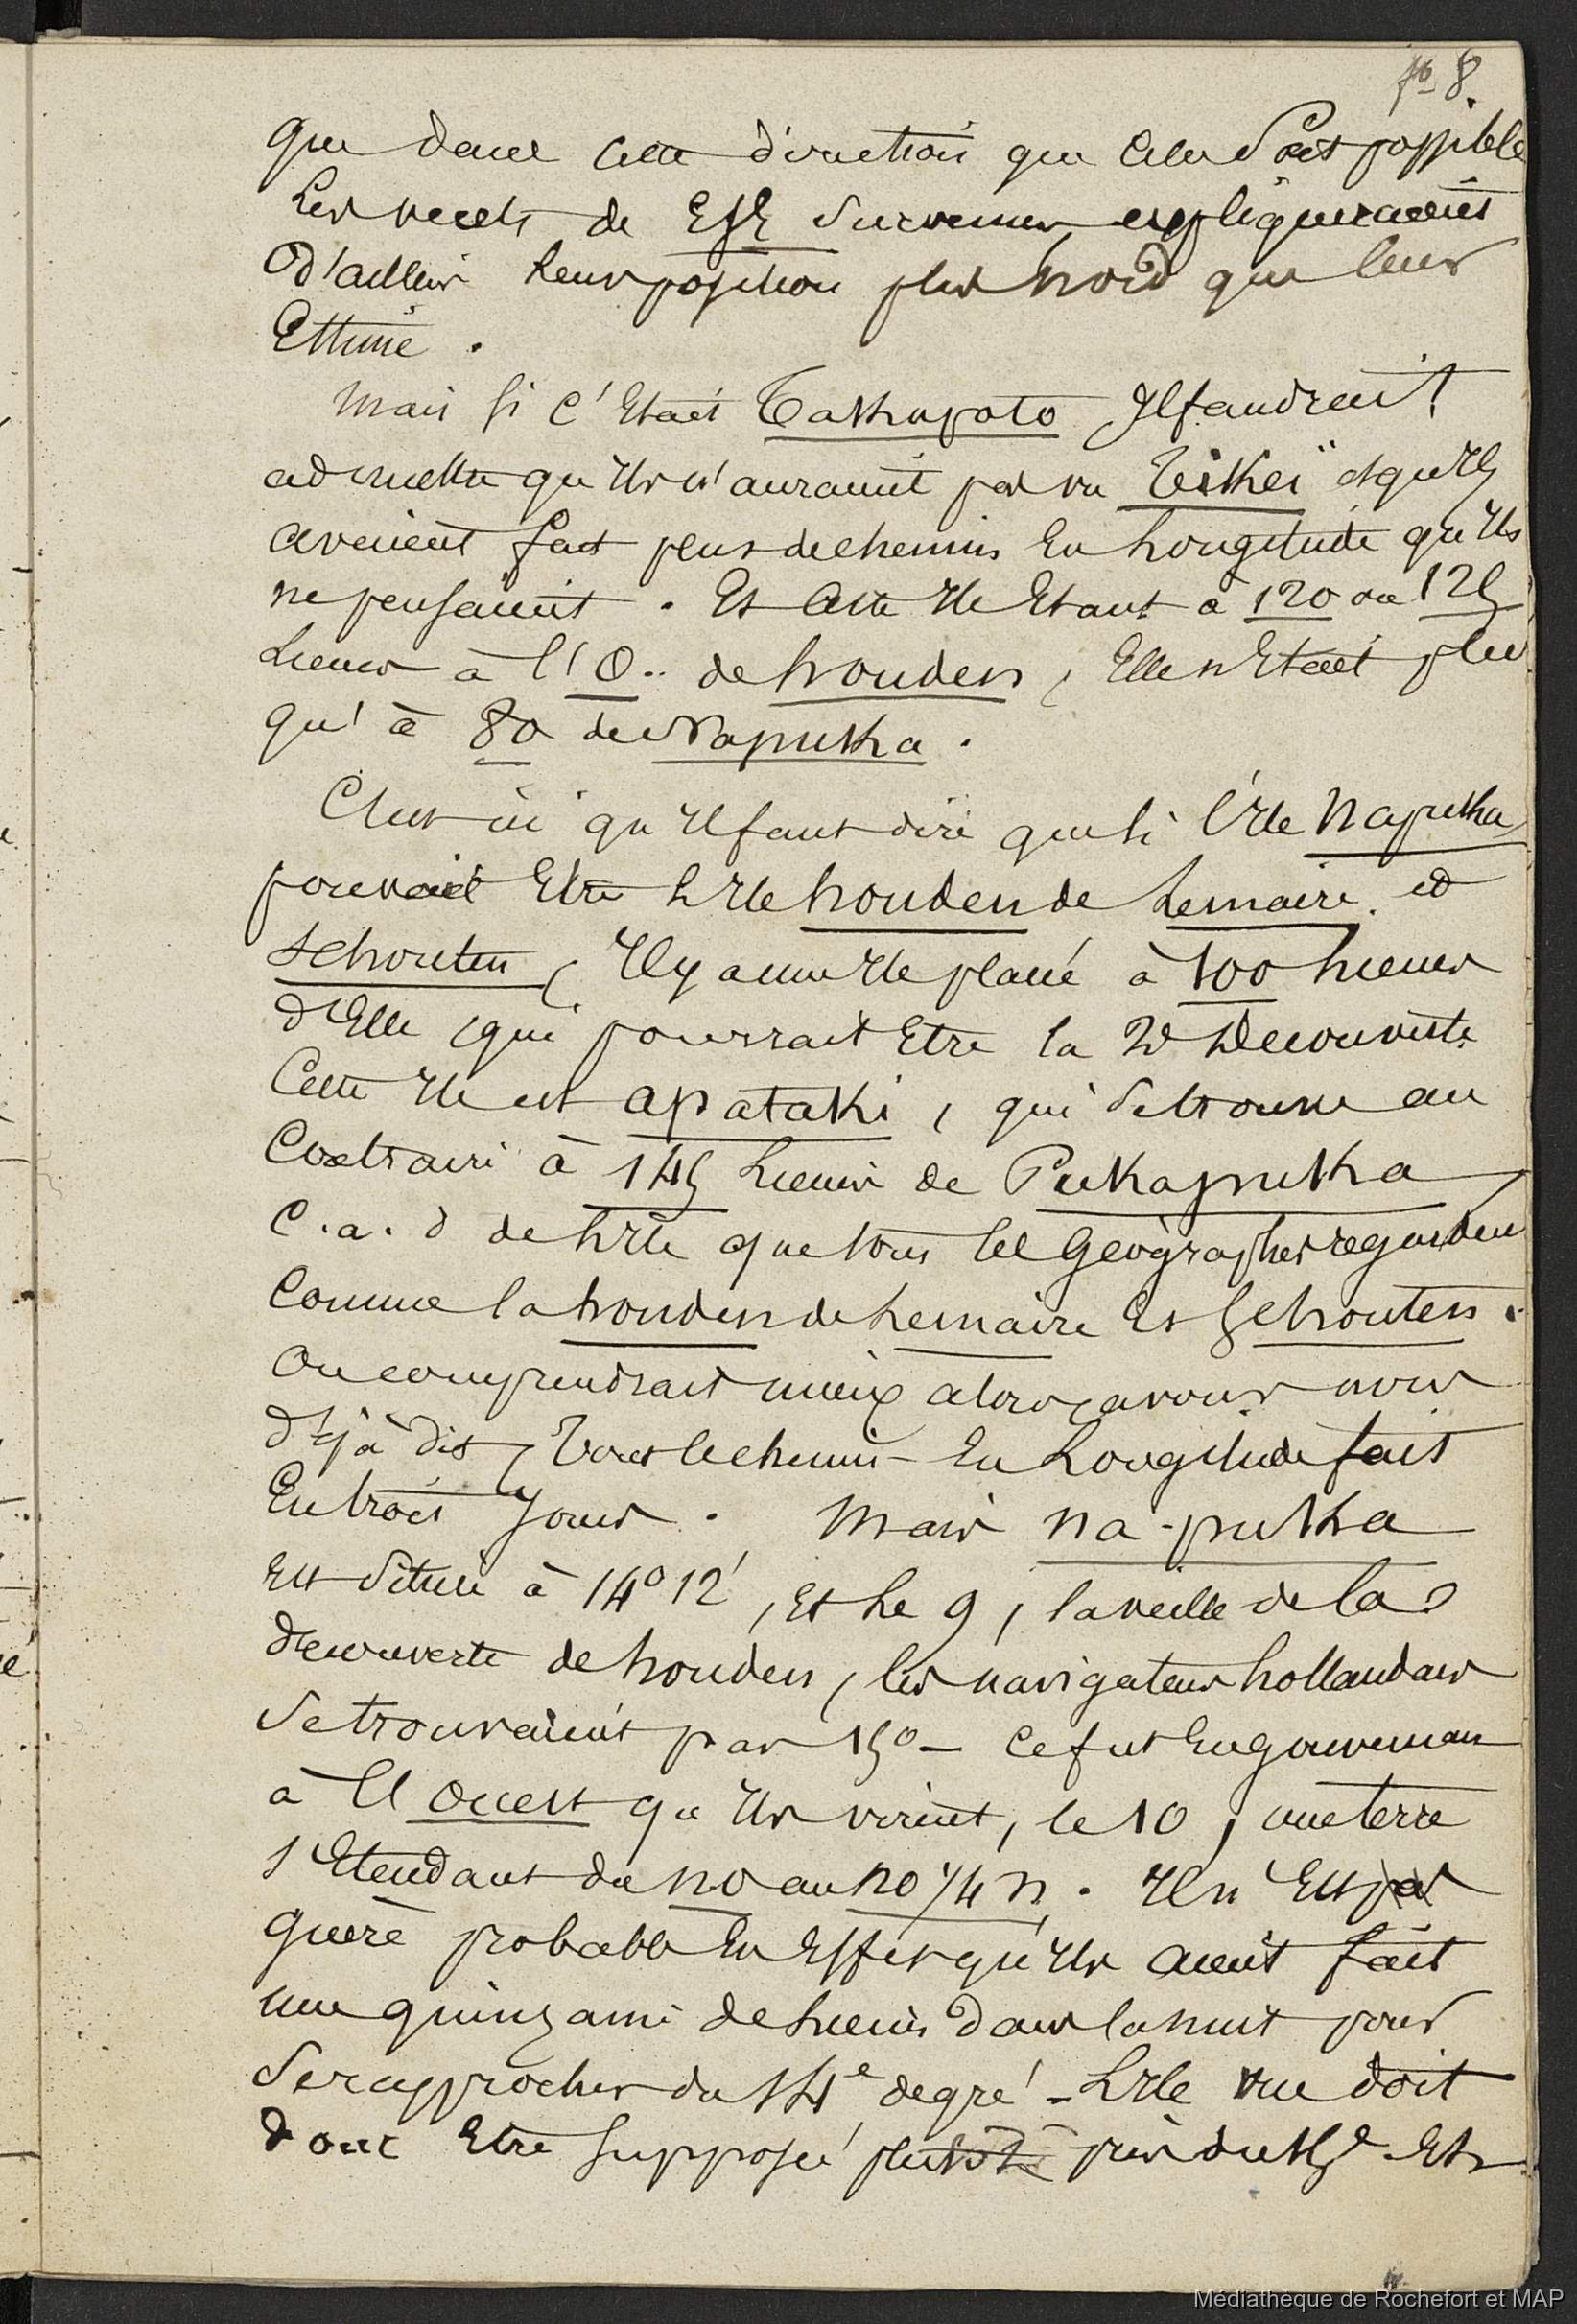 fo 8.
que dans cette direction que cela soit possible
Les vents de ESE survenus expliqueraient
d'ailleurs leur position plus nord que leur
Estime.
Mais si c'était Takapoto Il faudrait
admettre qu'ils n'auraient pas vu Tikei et qu'ils
avaient fait plus de chemin En Longitude qu'ils
ne pensaient. Et Cette Ile Etant à 120 ou 125
Lieues à l'O.. de houden, Elle n'Etait plus
qu'à 80 de Napuka.
C'est ici qu'il faut dire que si l'Ile Napuka
pouvait Etre l'Ile houden de Lemaire et
Schouten, Il y a une Ile placé à 100 Lieues
d'Elle, qui pourrait Etre la 2e Découverte
Cette Ile est apataki, qui se trouve au
Contraire à 145 Lieues de Pukapuka
C.a.d de l'Ile que tous les Géographes regardent
Comme la houden de Lemaire Et Schouten.
On comprendrait mieux alors, avons nous
déjà dit, tout le chemin En Longitude fait
En trois Jours. Mais na-puka
Est située à 14° 12', Et Le 9, la veille de la
découverte de houden, les navigateurs hollandais
se trouvaient par 15° – Ce fut En gouvernant
à l'Ouest qu'ils virent, le 10, une terre
s'Etendant du NO au NO 1/4 N. Il n'Est pas
guère probable En Effet qu'ils aient fait
une quinzaine de Lieues dans la nuit pour
se rapprocher du 14e degré – L'Ile vue doit
donc Etre supposée plutôt près du 15e Et
Médiathèque de Rochefort et MAP